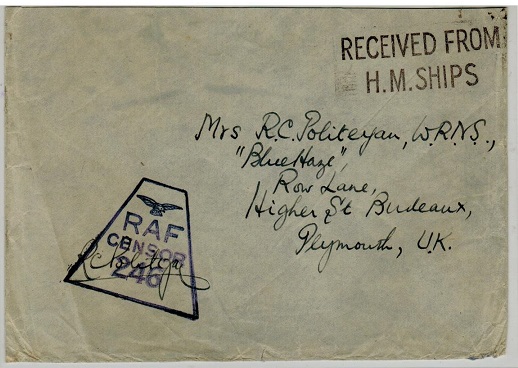 RECEIVED FROM
H.M. SHIPS
Mrs R.C. Politeyan, W.R.N.S.,
"Blue Haze",
Row Lane,
Higher St Budeaux,
Plymouth, U.K.
RAF
CENSOR
246